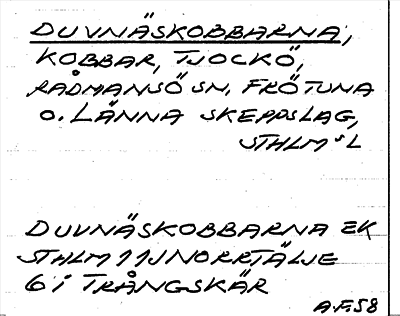 DUVNÄSKOBBARNA,
KOBBAR, TJOCKÖ,
RÅDMANSÖ SN. FRÖTUNA
O. LÄNNA SKEPPSLAG,
STHLMS L
DUVNÄSKOBBARNA EK
STHLM 11J NORRTÄLJE
6 i TRÅNGSKÄR
A.F.58